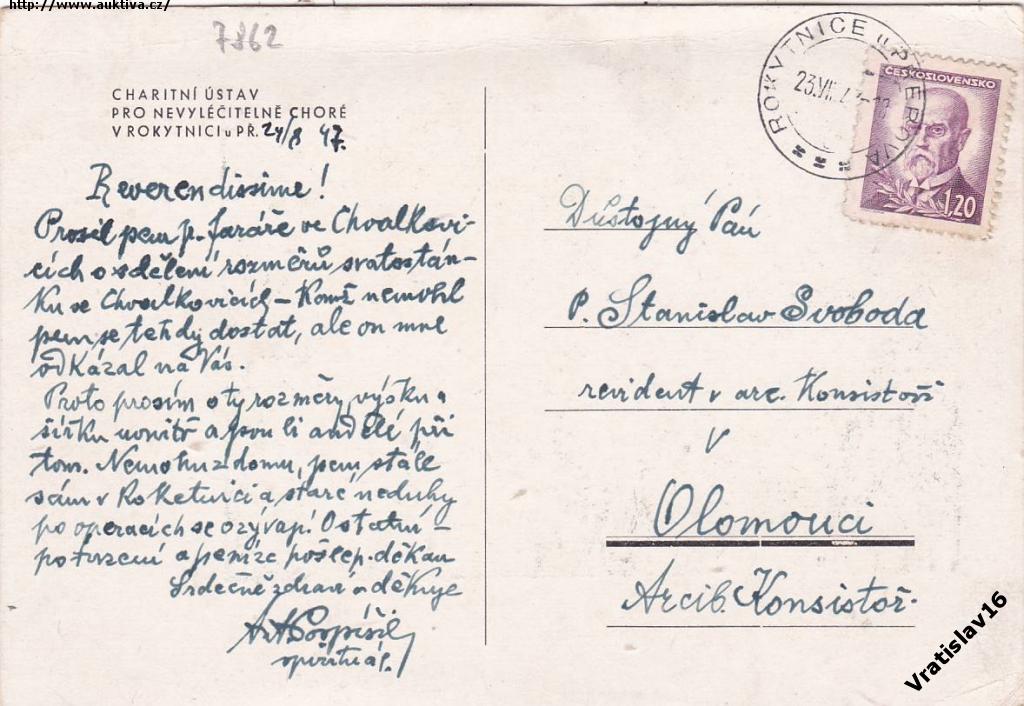 http://www.auktiva.cz/
7862
CHARITNÍ ÚSTAV
PRO NEVYLÉČITELNĚ CHORÉ
V ROKYTNICI u PŘ. 24/8 47.
Reverendissime!
Prosil jsem p. faráře ve Chvalkovi-
cích o sdělení rozměrů svatostán-
ku ve Chvalkovicích – Komž nemohl
jsem se tehdy dostat, ale on mne
odkázal na Vás.
Proto prosím o ty rozměry, výšku a
šířku uvnitř a jsou li andělé při
tom. Nemohu z domu, jsem stále
sám v Roketnici a staré neduhy
po operacích se ozývají! Ostatní –
potvrzení a peníze pošle p. děkan
Srdečně zdraví a děkuje
Ant Pospíšil
spirituál.
ROKYTNICE u PŘEROVA
23.VII
ČESKOSLOVENSKO
1,20
Důstojný Pán
P. Stanislav Svoboda
revident v arc. Konsistoři
v
Olomouci
Arcib. Konsistoř.
Vratislav16